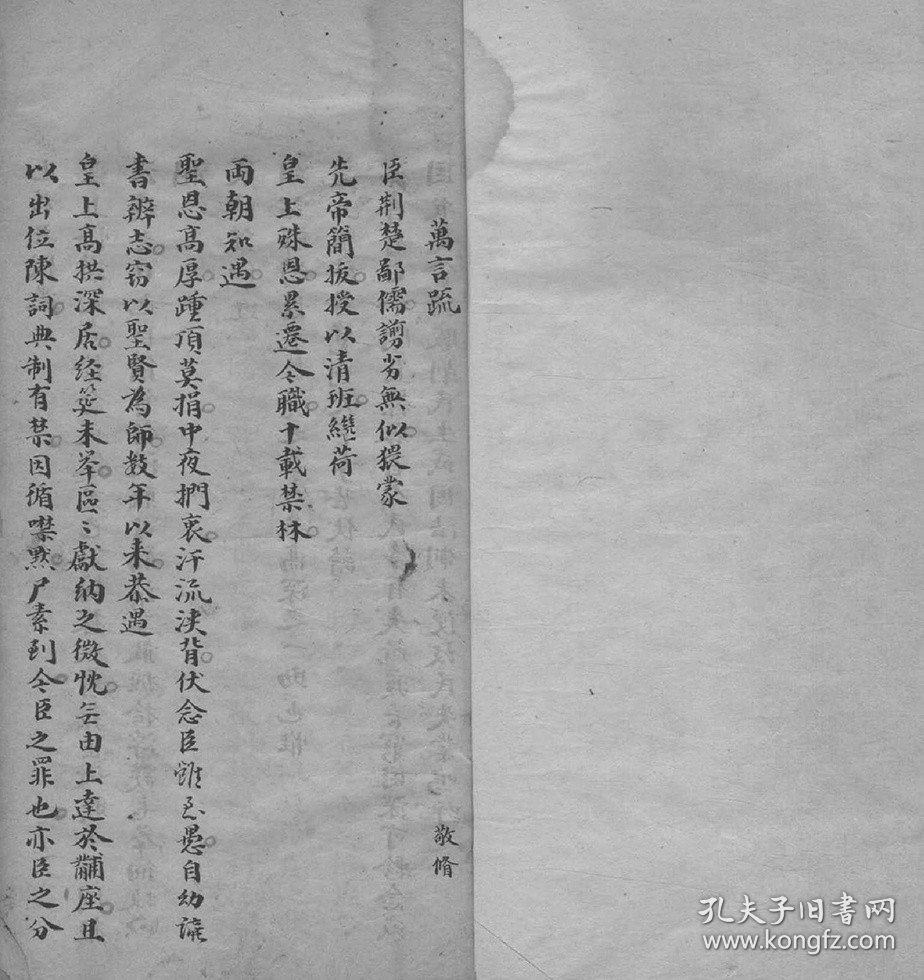 萬言疏
敬脩
臣荆楚鄙儒謭劣無似猥蒙
先帝簡拔授以清班繼荷
皇上殊恩累遷今職十載禁林
両朝知遇
聖恩高厚踵頂莫捐中夜捫衷汗流浹背伏念臣雖至愚自幼讀
書辨志窃以聖賢為師数年以来恭遇
皇上高拱深居経筵未举區〻獻纳之微忱無由上達於黼座且
以出位陳詞典制有禁因循噤默尸素到今臣之罪也亦臣之分
孔夫子旧书网
www.kongfz.com